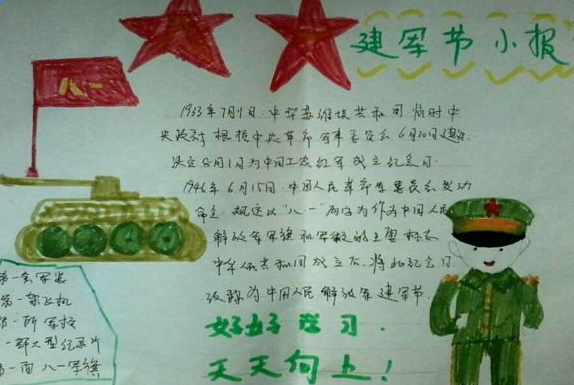 建军节小报
八一
1933年7月1日,中华苏维埃共和国临时中
央政府根据中央革命军事委员会6月30日建议,
决定8月1日为中国工农红军成立纪念日.
1946年6月15日,中国人民革命军事委员会发动
命令,规定以"八一"两字为作为中国人民
解放军军旗和军徽的主要标志
中华人民共和国成立后,将此纪念日
改称为中国人民解放军建军节.
好好学习.
天天向上!
第一套军装
第一架飞机
第一所军校
一部大型纪录片
第一面八一军旗